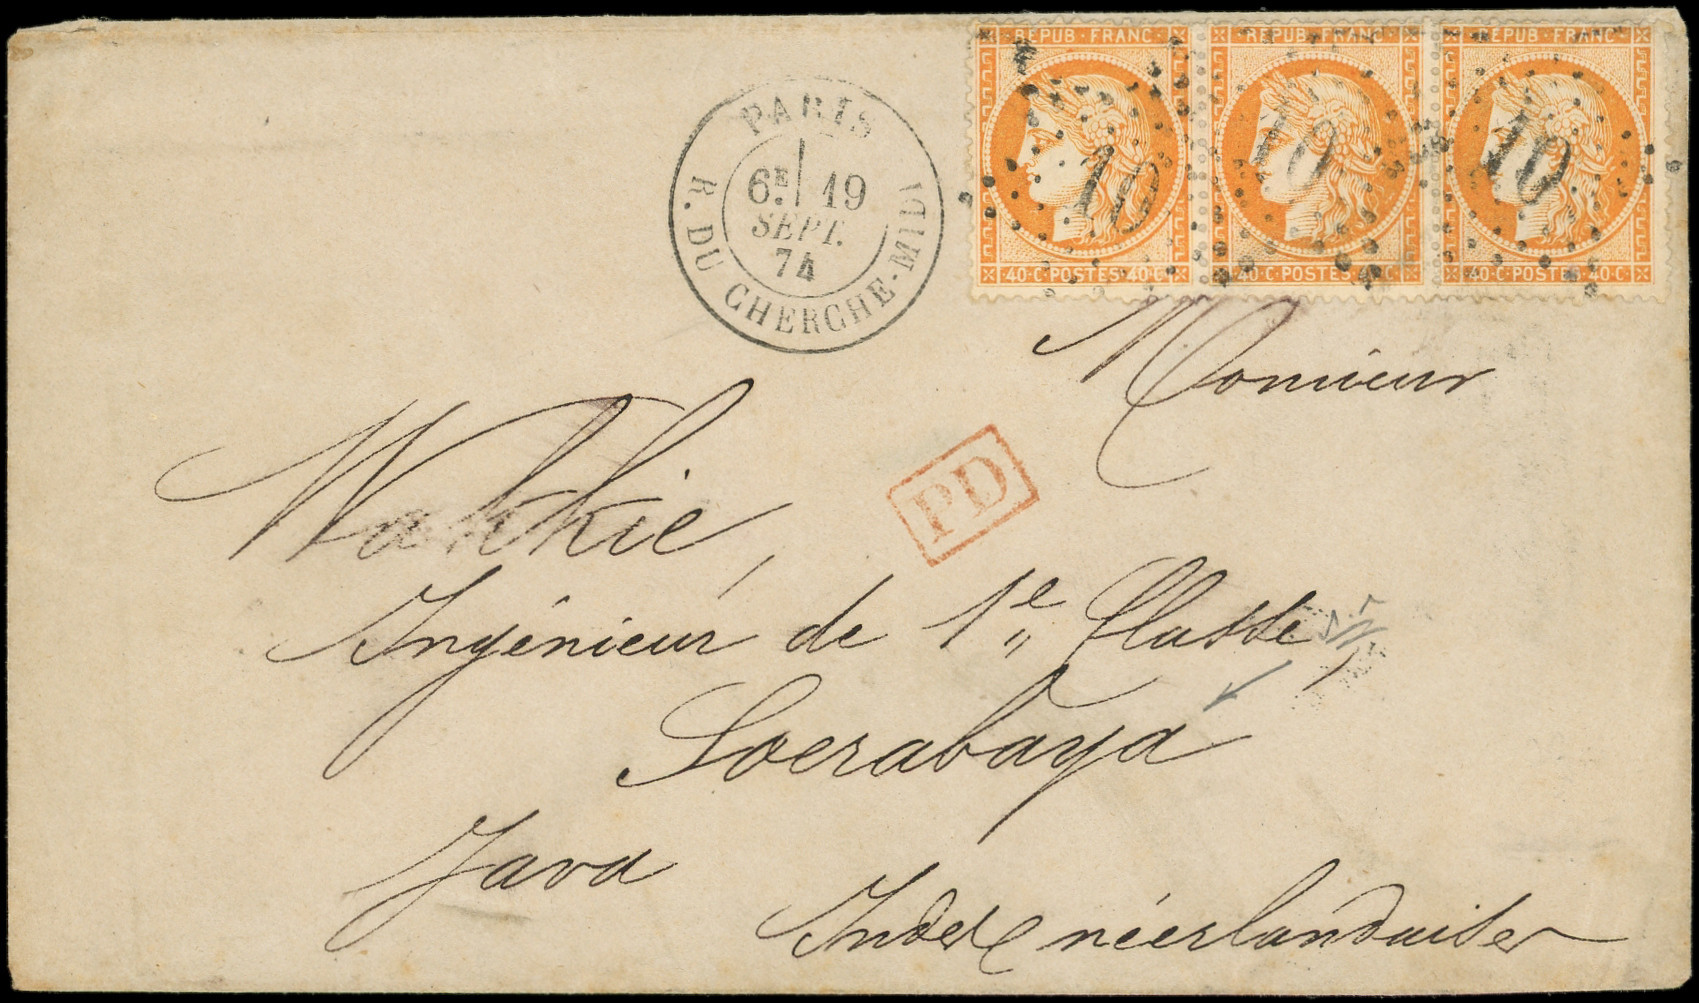 REPUB·FRANC· REPUB·FRANC· REPUB·FRANC·
10 10 10
40·C·POSTES·40·C· 40·C·POSTES·40·C· 40·C·POSTES·40·C·
PARIS
6E 19
SEPT.
74
R. DU CHERCHE-MIDI
Monsieur
PD
Ingénieur de 1e Classe,
Soerabaya
Java
Indes néerlandaises